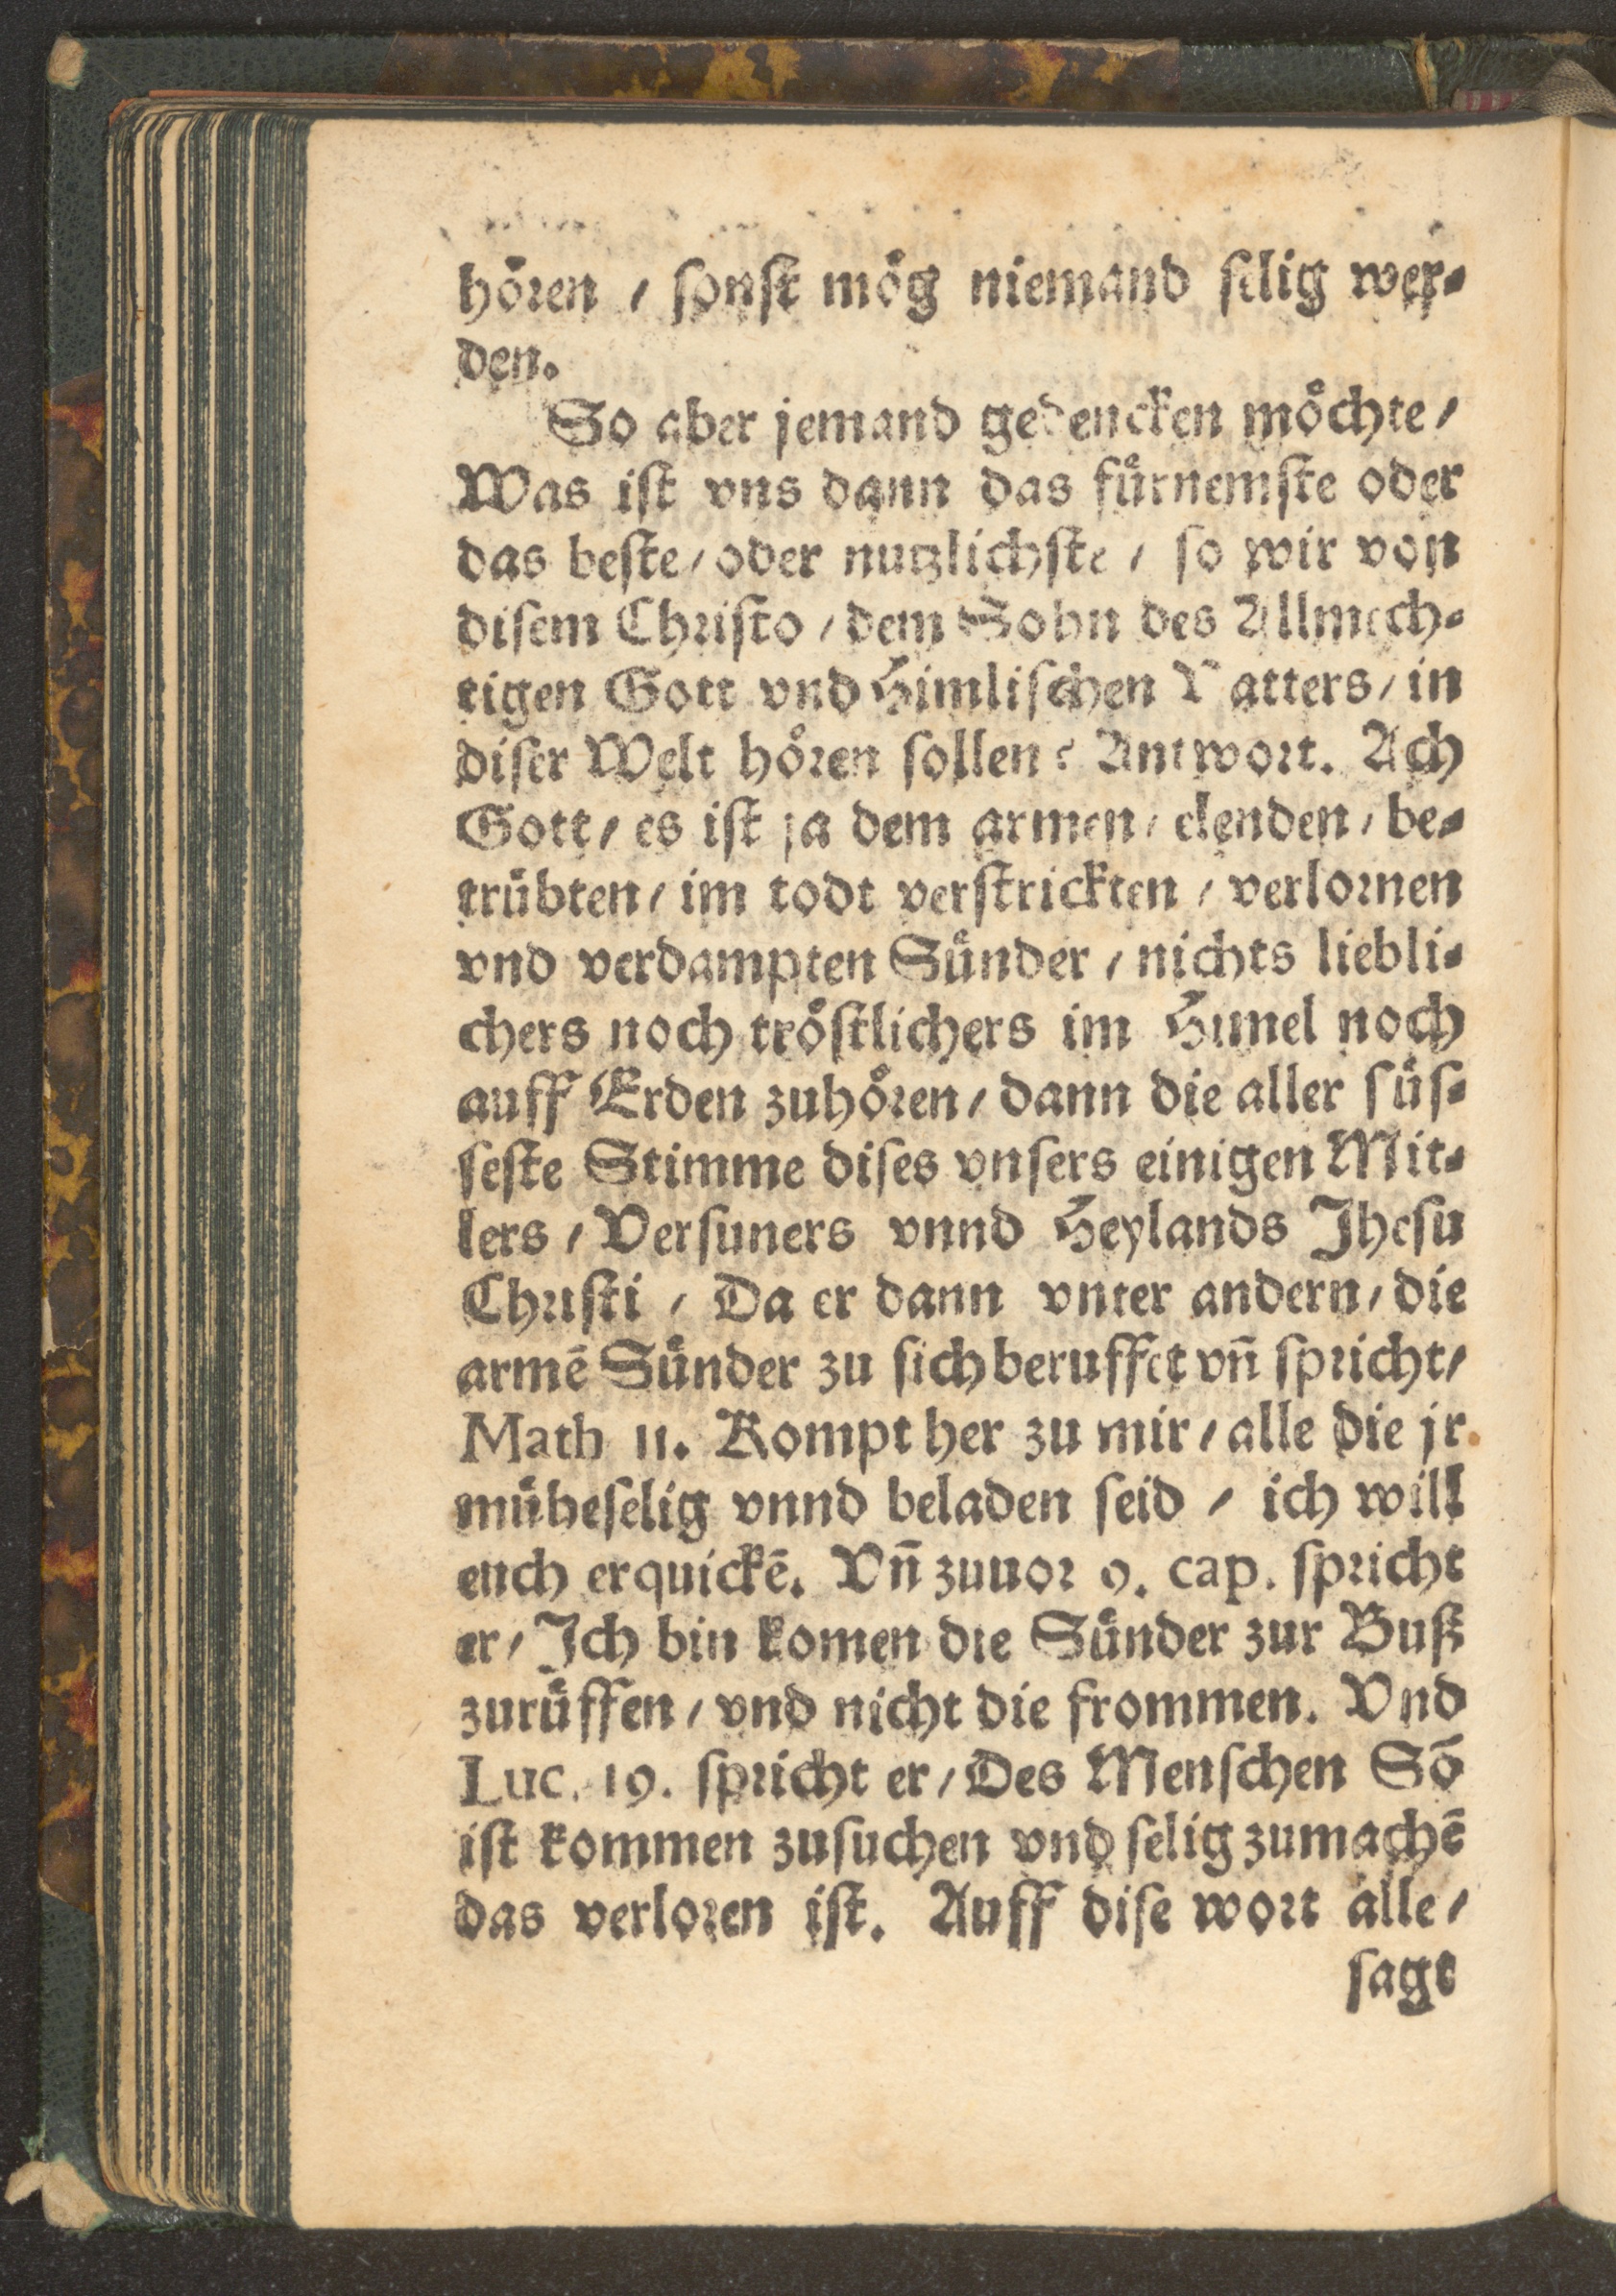 hören / ſonſt mög niemand ſelig wer⸗
den.
So aber jemand gedencken möchte /
Was iſt vns dann das fürnemſte oder
das beſte / oder nutzlichſte / ſo wir von
diſem Chriſto / dem Sohn des Allmech⸗
tigen Gott vnd Himliſchen Vatters / in
diſer Welt hören ſollen? Antwort. Ach
Gott / es iſt ja dem armen / elenden / be⸗
trübten / im todt verſtrickten / verlornen
vnd verdampten Sünder / nichts liebli⸗
chers noch tröſtlichers im Himel noch
auff Erden zuhören / dann die aller ſüſ⸗
ſeſte Stimme diſes vnſers einigen Mit⸗
lers / Verſuners vnnd Heylands Jheſu
Chriſti / Da er dann vnter andern / die
armē Sünder zu ſich beruffet vn̄ ſpricht /
Math 11. Kompt her zu mir / alle die jr
müheſelig vnnd beladen ſeid / ich will
euch erquickē. Vn̄ zuuor 9. cap. ſpricht
er / Jch bin komen die Sünder zur Buß
zurüffen / vnd nicht die frommen. Vnd
Luc. 19. ſpricht er / Des Menſchen Sō
iſt kommen zuſuchen vnd ſelig zumachē
das verloren iſt. Auff diſe wort alle /
ſagt